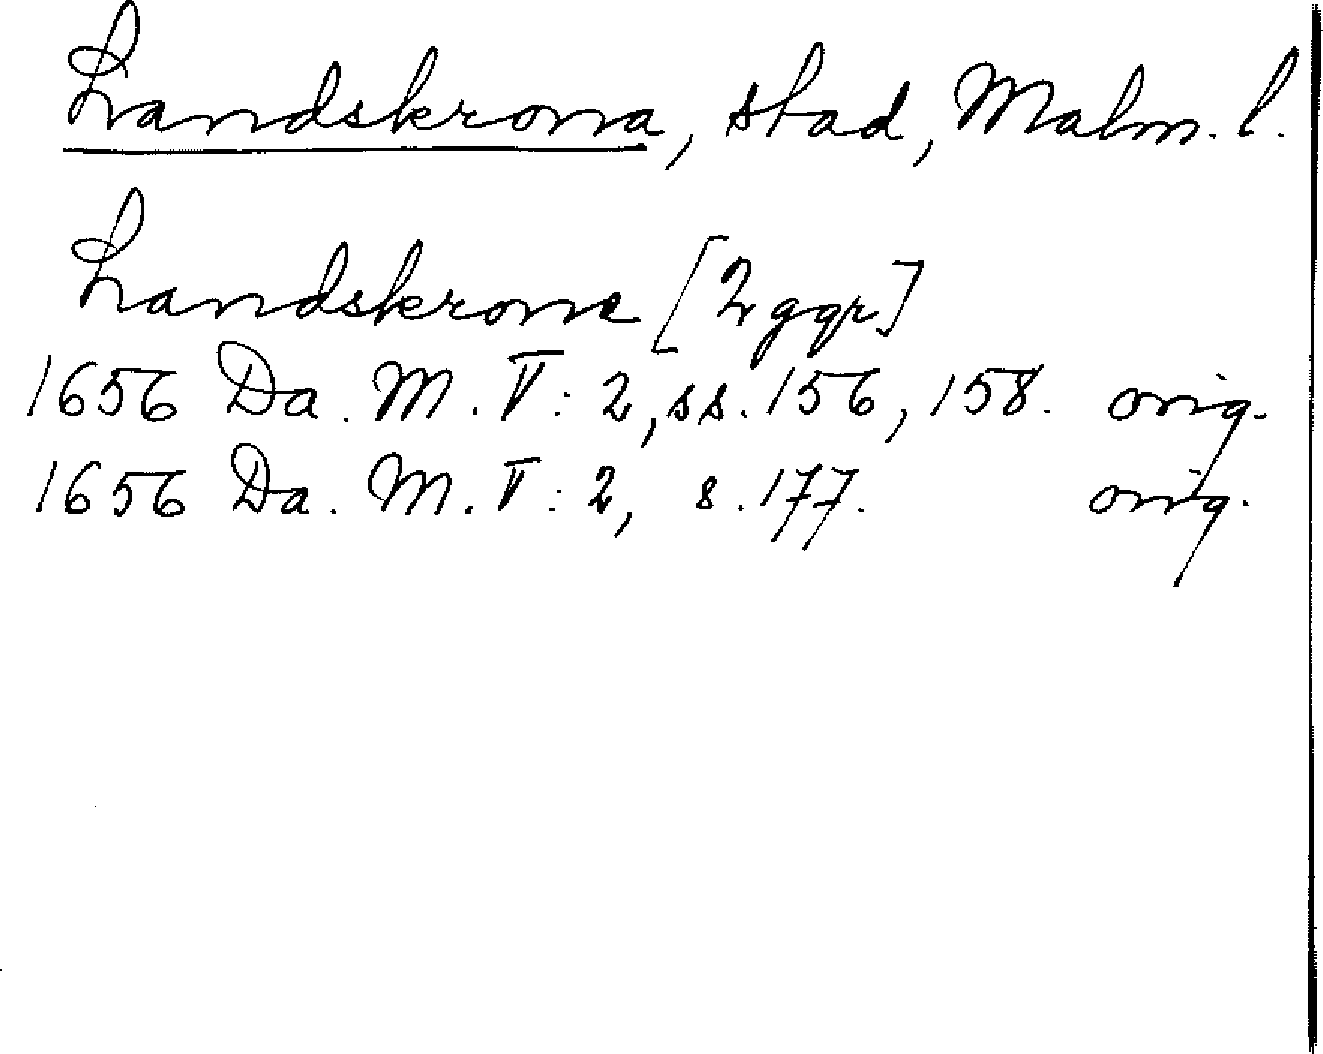 Landskrona, stad, Malm. l.
Landskrone [2 ggr]
1656 Da. M. V: 2, ss. 156, 158. orig.
1656 Da. M. V: 2, s. 177. orig.